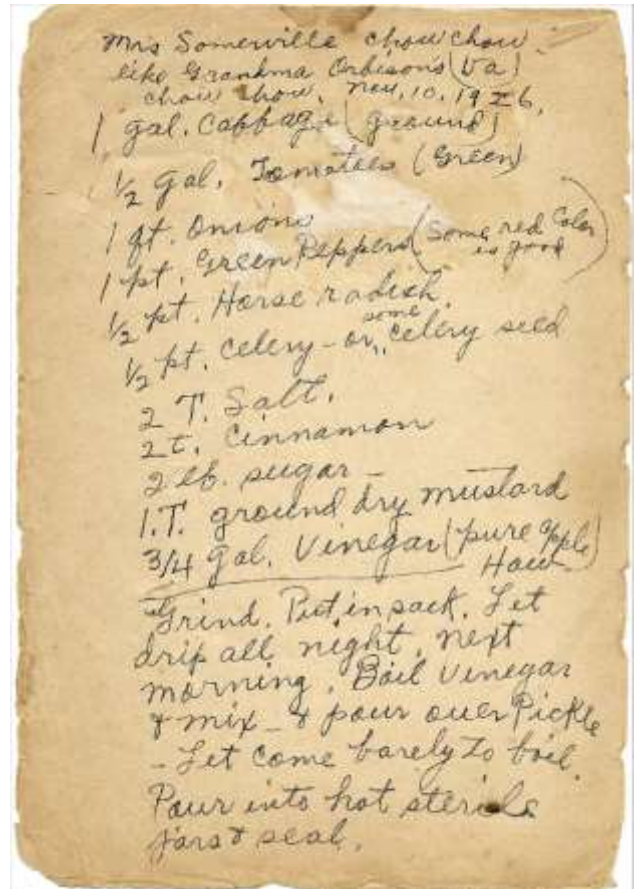 Mrs Somerville chow chow.
like Grandma Orbisons (Va)
chow chow. Nov. 10, 1926,
1 gal. Cabbage (ground)
1/2 gal. Tomatoes (Green)
1 qt. Onions
1 pt. Green Peppers (Some red Color is good)
1/2 pt. Horse radish.
1/2 pt. Celery - or some celery seed
2 T. Salt.
2 t. Cinnamon
2 lb. sugar -
1.T. ground dry mustard
3/4 gal. Vinegar (pure apple)
How
Grind. Put in sack. Let
drip all night. next
morning. Boil vinegar
& mix - & pour over Pickle
- Let come barely to boil.
Pour into hot sterile
jars & seal.